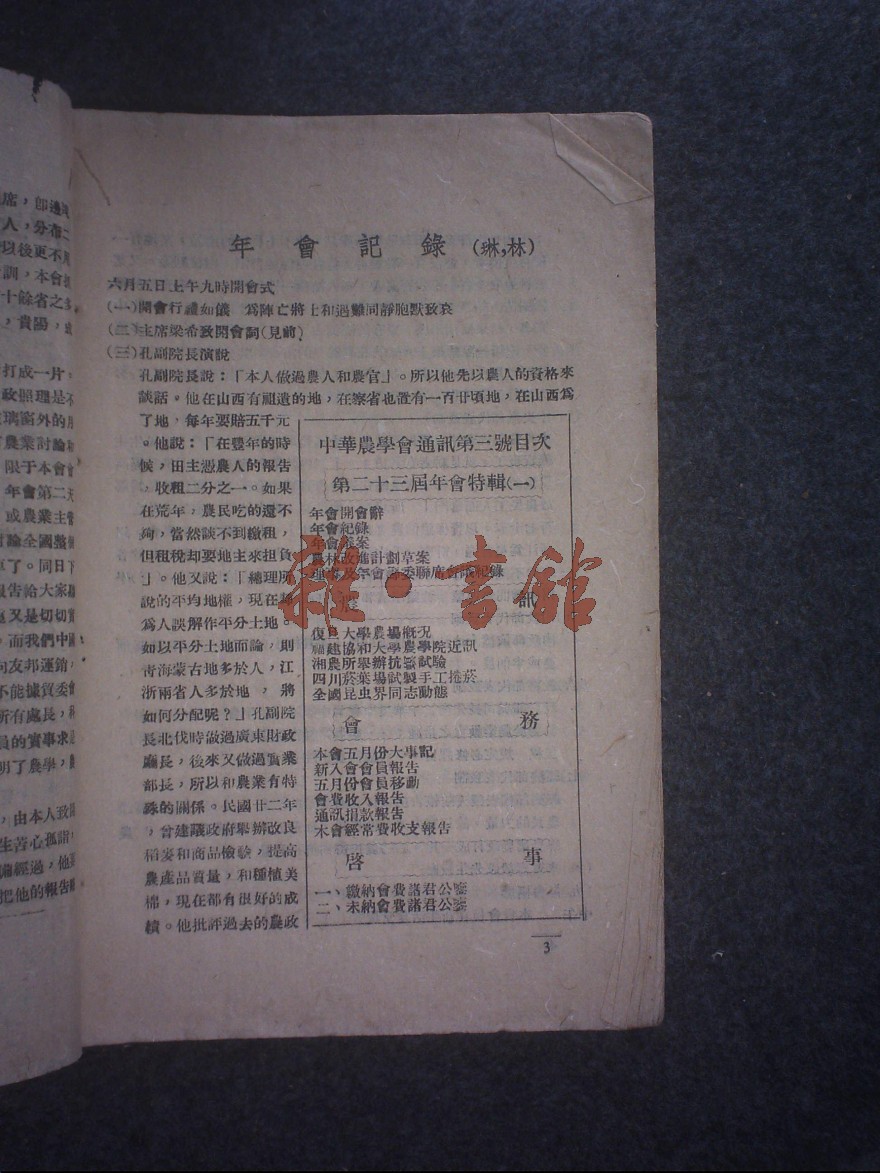 年會記錄(琳,林)
六月五日上午九時開會式
(一)開會行禮如儀 為陣亡將士和過難同靜胞默致哀
(二)主席梁希致開會詞(見前)
(三)孔副院長演說
孔副院長說:「本人做過農人和農官」。所以他先以農人的資格來
談話。他在山西有祖遺的地,在察省也置有一百廿頃地,在山西為
了地,每年要賠五千元
。他說:「在豐年的時
候,田主憑農人的報告
,收租二分之一。如果
在荒年,農民吃的還不
夠,當然談不到繳租,
但租稅却要地主來担負
」。他又說:「總理所
說的平均地權,現在
為人誤解作平分土地。
如以平分土地而論,則
青海蒙古地多於人,江
浙兩省人多於地,將
如何分配呢?」孔副院
長北伐時做過廣東財政
廳長,後來又做過實業
部長,所以和農業有特
殊的關係。民國廿二年
,曾建議政府舉辦改良
稻麥和商品檢驗,提高
農產品質量,和種植美
棉,現在都有很好的成
績。他批評過去的農政
中華農學會通訊第三號目次
第二十三屆年會特輯(一)
年會開會辭
年會紀錄
年會 案
農林改進計劃草案
理事及年會 委聯席會議紀錄
訊
復旦大學農場概況
福建協和大學農學院近訊
湘農所舉辦抗 試驗
四川菸葉場試製手工捲菸
全國昆虫界同志動態
會務
本會五月份大事記
新入會會員報告
五月份會員移動
會費收入報告
通訊捐款報告
本會經常費收支報告
啓事
一、繳納會費諸君公鑒
二、未納會費諸君公鑒
3
雜·書館
席,即邊
人,分布二
以後更不
訓,本會
十餘省之多
,貴陽,
打成一片。
政照理是不
璃窗外的
農業討論
限于本會會
年會第二天
或農業主
論全國整
了。同日下
報告給大家
又是切切實
而我們中
向友邦運銷
不能據貿委會
所有處長,
員的實事求
明了農學,
,由本人致
生苦心孤詣
備經過,他
把他的報告